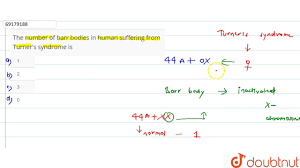 69179188
Turner's syndrome
The number of barr bodies in human suffering from
Turner's syndrome is
a) 1
b) 2
c) 3
d) 0
44A + OX ← ♀
Barr body → inactivated
X-
chromosome
44A + XX
↓ normal - 1
doubtnut